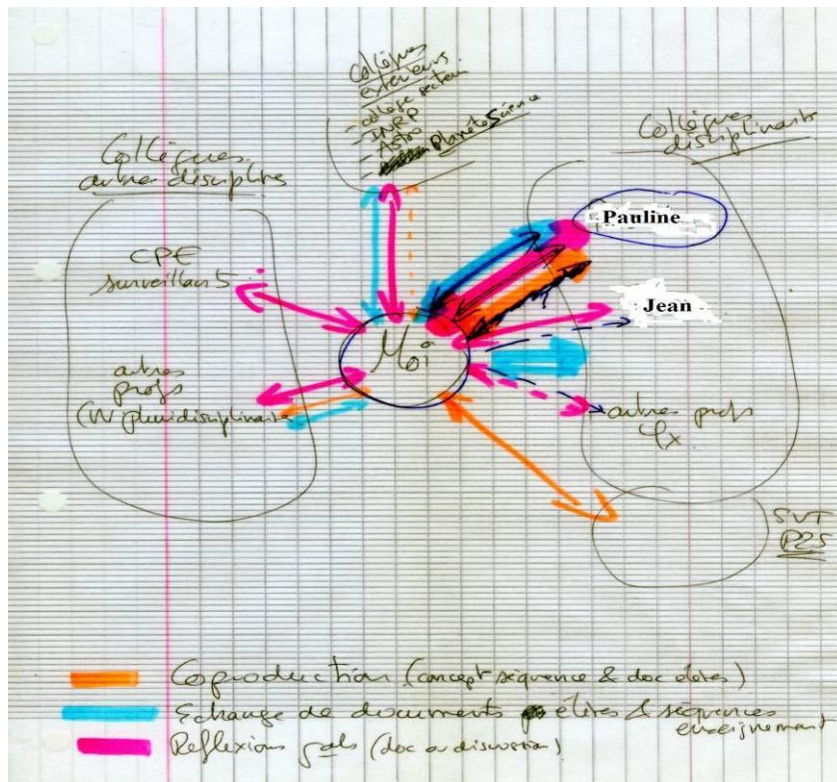 Collègues
extérieurs
- collège secteur
- INRP
- Astro
- Planète Science
Collègues
autres disciplines
Collègues
disciplinaires
CPE
surveillants
Pauline
Jean
Moi
autres
profs
(W pluridisciplinaire
autres profs
φx
SVT
P25
Coproduction (concept séquence & doc élèves)
Echange de documents élèves & séquences
enseignement
Réflexions gals (doc ou discussion)